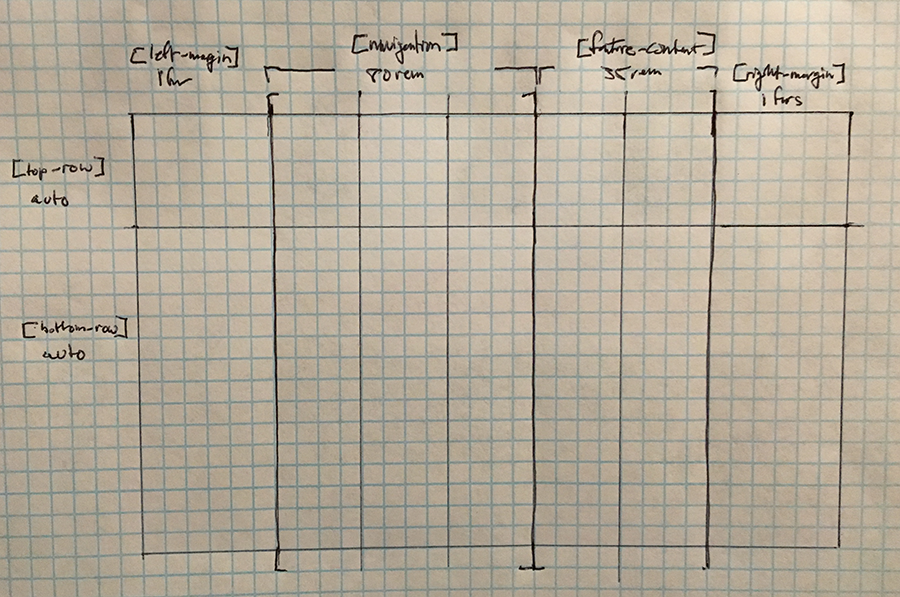 [left-margin]
1fr
[navigation]
80rem
[feature-content]
35rem
[right-margin]
1 frs
[top-row]
auto
[bottom-row]
auto